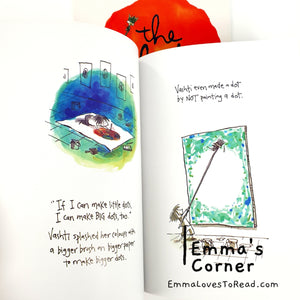 the
"If I can make little dots,
I can make BIG dots, too."
Vashti splashed her colours with
a bigger brush on bigger paper
to make bigger dots.
Vashti even made a dot
by NOT painting a dot.
Emma's
Corner
EmmaLovesToRead.com